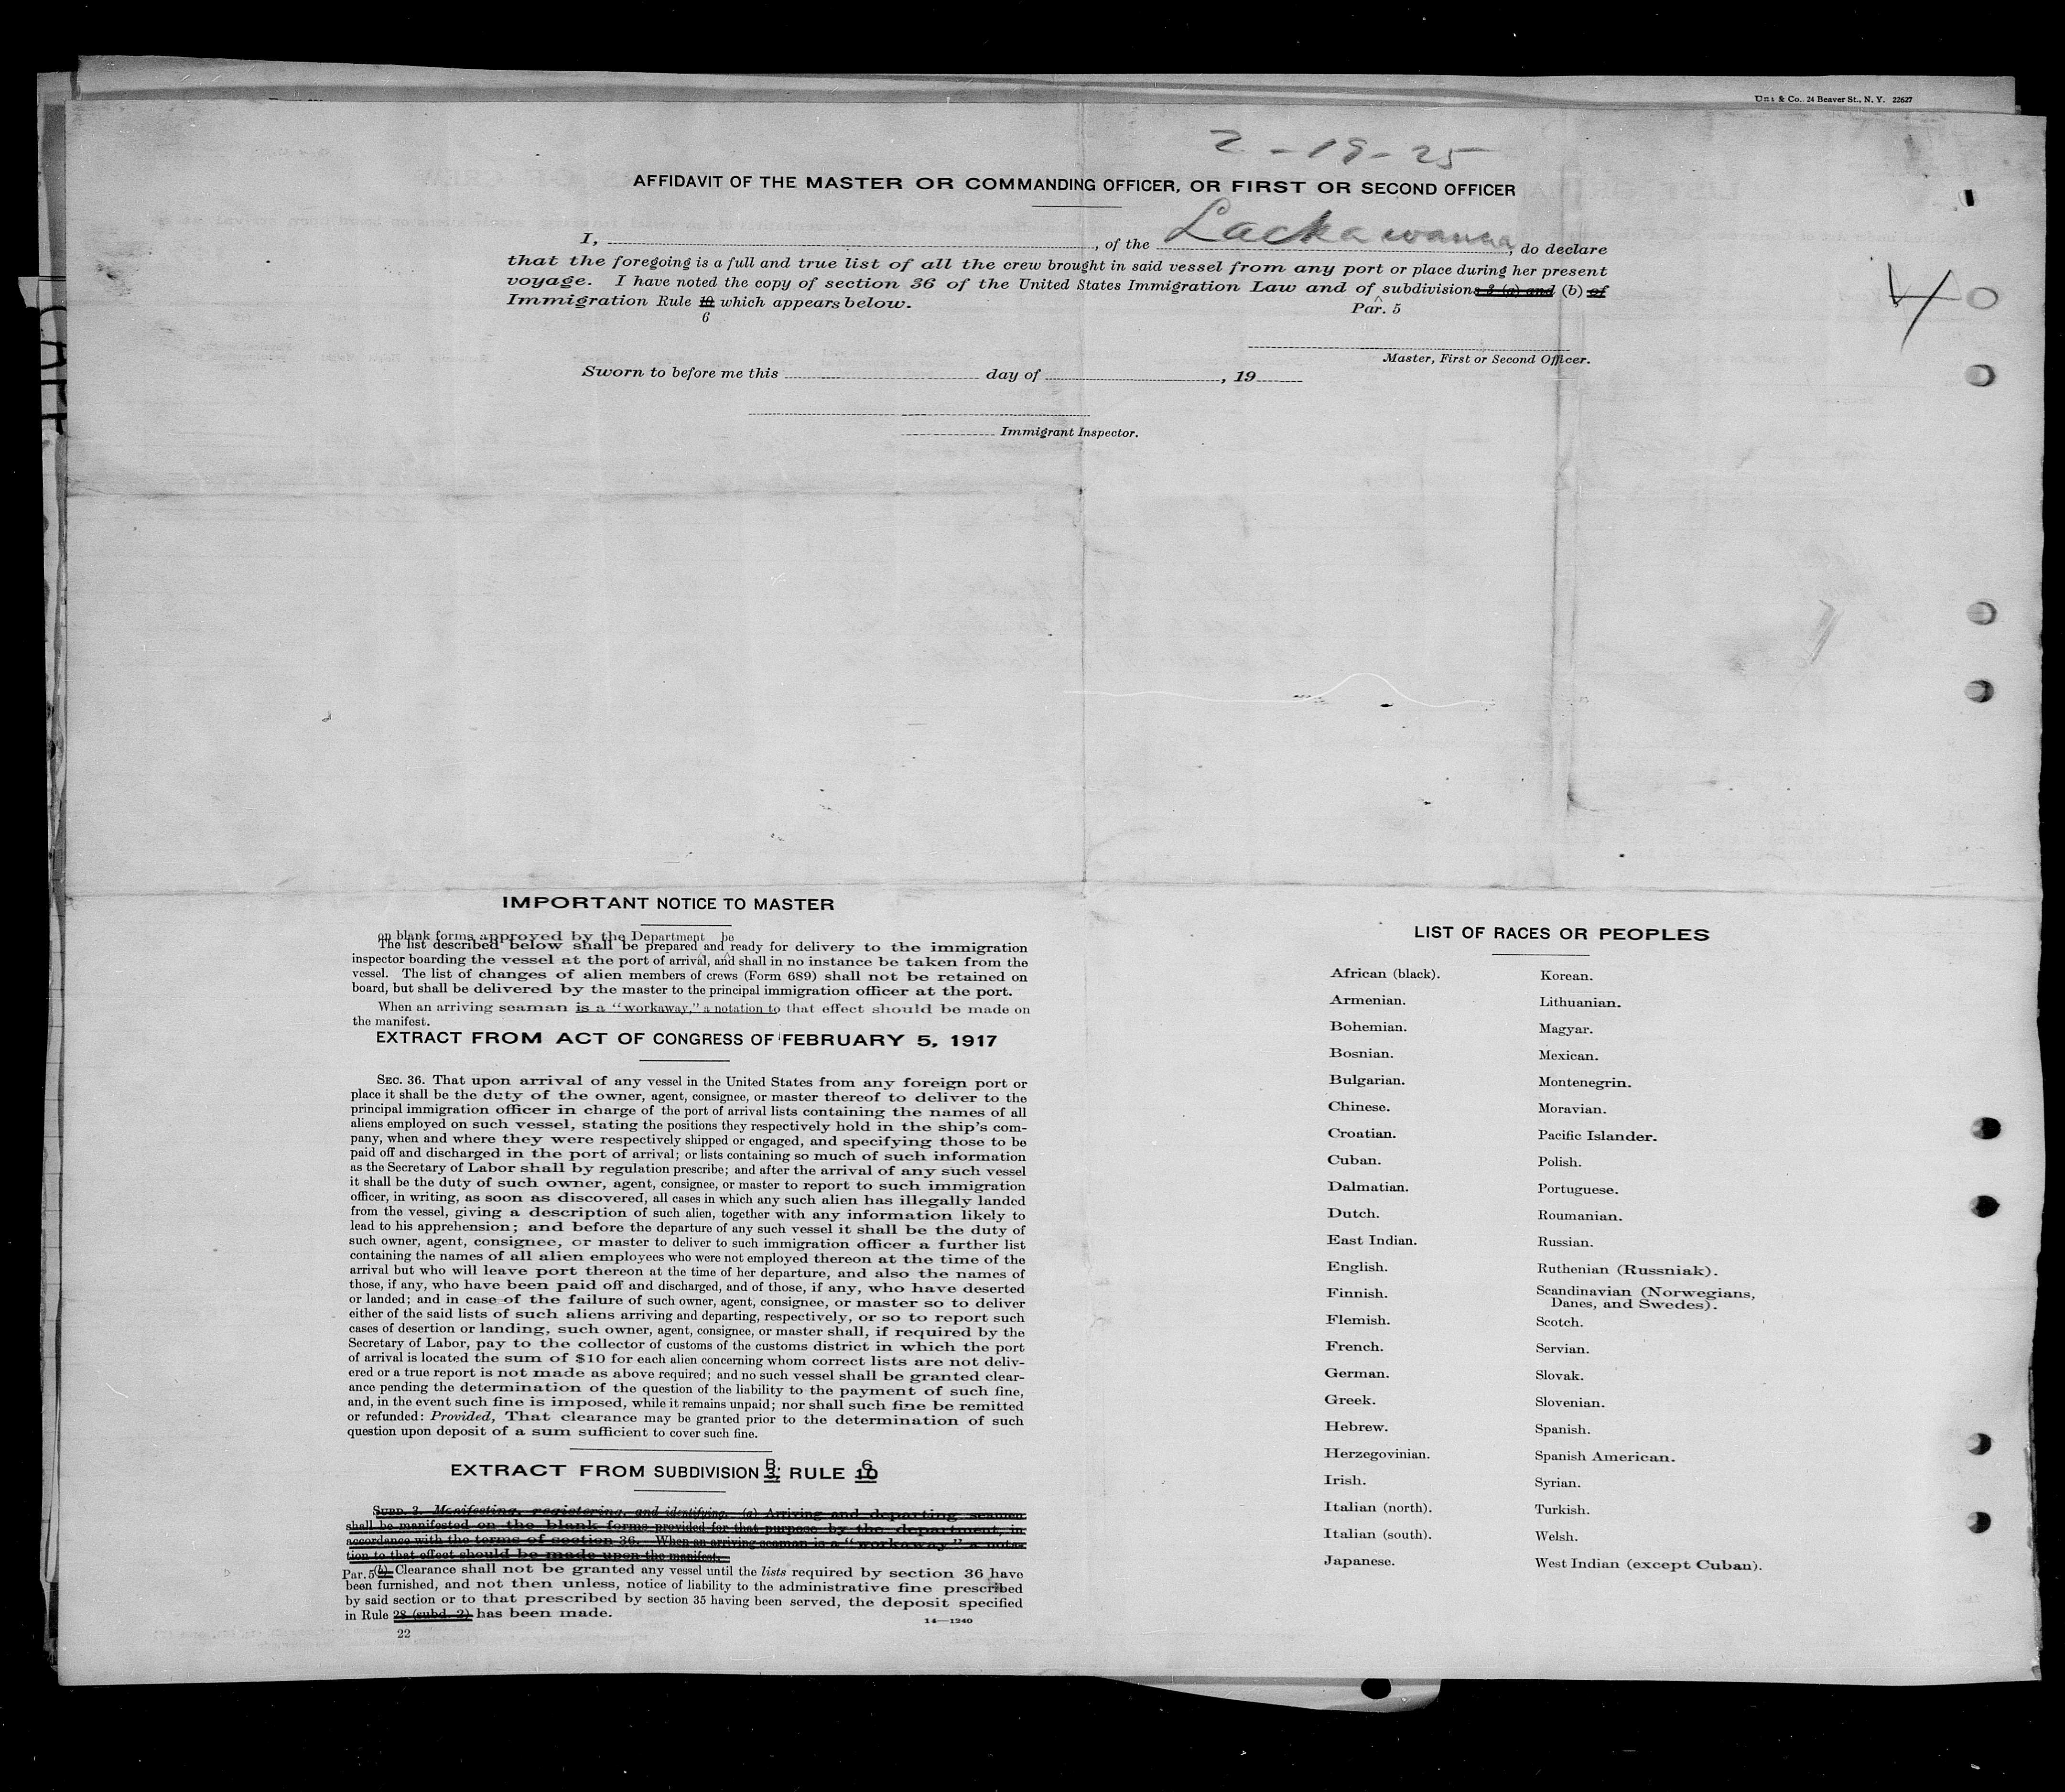 & Co., 24 Beaver St., N. Y. 22627
2-19-25
AFFIDAVIT OF THE MASTER OR COMMANDING OFFICER, OR FIRST OR SECOND OFFICER
I, , of the Lackawanna, do declare
that the foregoing is a full and true list of all the crew brought in said vessel from any port or place during her present
voyage. I have noted the copy of section 36 of the United States Immigration Law and of subdivisions 3 (a) and (b) of
Immigration Rule 10 which appears below.
6
Par. 5
Master, First or Second Officer.
Sworn to before me this day of , 19
Immigrant Inspector.
IMPORTANT NOTICE TO MASTER
on blank forms approved by the Department be
The list described below shall be prepared and ready for delivery to the immigration
inspector boarding the vessel at the port of arrival, and shall in no instance be taken from the
vessel. The list of changes of alien members of crews (Form 689) shall not be retained on
board, but shall be delivered by the master to the principal immigration officer at the port.
When an arriving seaman is a "workaway," a notation to that effect should be made on
the manifest.
EXTRACT FROM ACT OF CONGRESS OF FEBRUARY 5, 1917
SEC. 36. That upon arrival of any vessel in the United States from any foreign port or
place it shall be the duty of the owner, agent, consignee, or master thereof to deliver to the
principal immigration officer in charge of the port of arrival lists containing the names of all
aliens employed on such vessel, stating the positions they respectively hold in the ship's com-
pany, when and where they were respectively shipped or engaged, and specifying those to be
paid off and discharged in the port of arrival; or lists containing so much of such information
as the Secretary of Labor shall by regulation prescribe; and after the arrival of any such vessel
it shall be the duty of such owner, agent, consignee, or master to report to such immigration
officer, in writing, as soon as discovered, all cases in which any such alien has illegally landed
from the vessel, giving a description of such alien, together with any information likely to
lead to his apprehension; and before the departure of any such vessel it shall be the duty of
such owner, agent, consignee, or master to deliver to such immigration officer a further list
containing the names of all alien employees who were not employed thereon at the time of the
arrival but who will leave port thereon at the time of her departure, and also the names of
those, if any, who have been paid off and discharged, and of those, if any, who have deserted
or landed; and in case of the failure of such owner, agent, consignee, or master so to deliver
either of the said lists of such aliens arriving and departing, respectively, or so to report such
cases of desertion or landing, such owner, agent, consignee, or master shall, if required by the
Secretary of Labor, pay to the collector of customs of the customs district in which the port
of arrival is located the sum of $10 for each alien concerning whom correct lists are not deliv-
ered or a true report is not made as above required; and no such vessel shall be granted clear-
ance pending the determination of the question of the liability to the payment of such fine,
and, in the event such fine is imposed, while it remains unpaid; nor shall such fine be remitted
or refunded: Provided, That clearance may be granted prior to the determination of such
question upon deposit of a sum sufficient to cover such fine.
B 6
EXTRACT FROM SUBDIVISION 3, RULE 10
SUBD. 3. Manifesting, registering, and identifying. (a) Arriving and departing seamen
shall be manifested on the blank forms provided for that purpose by the department, in
accordance with the terms of section 36. When an arriving seaman is a "workaway" a nota-
tion to that effect should be made upon the manifest.
Par. 5 (b) Clearance shall not be granted any vessel until the lists required by section 36 have
been furnished, and not then unless, notice of liability to the administrative fine prescribed
by said section or to that prescribed by section 35 having been served, the deposit specified
in Rule 28 (subd. 2) has been made.
22
14—1240
LIST OF RACES OR PEOPLES
African (black).
Armenian.
Bohemian.
Bosnian.
Bulgarian.
Chinese.
Croatian.
Cuban.
Dalmatian.
Dutch.
East Indian.
English.
Finnish.
Flemish.
French.
German.
Greek.
Hebrew.
Herzegovinian.
Irish.
Italian (north).
Italian (south).
Japanese.
Korean.
Lithuanian.
Magyar.
Mexican.
Montenegrin.
Moravian.
Pacific Islander.
Polish.
Portuguese.
Roumanian.
Russian.
Ruthenian (Russniak).
Scandinavian (Norwegians,
Danes, and Swedes).
Scotch.
Servian.
Slovak.
Slovenian.
Spanish.
Spanish American.
Syrian.
Turkish.
Welsh.
West Indian (except Cuban).